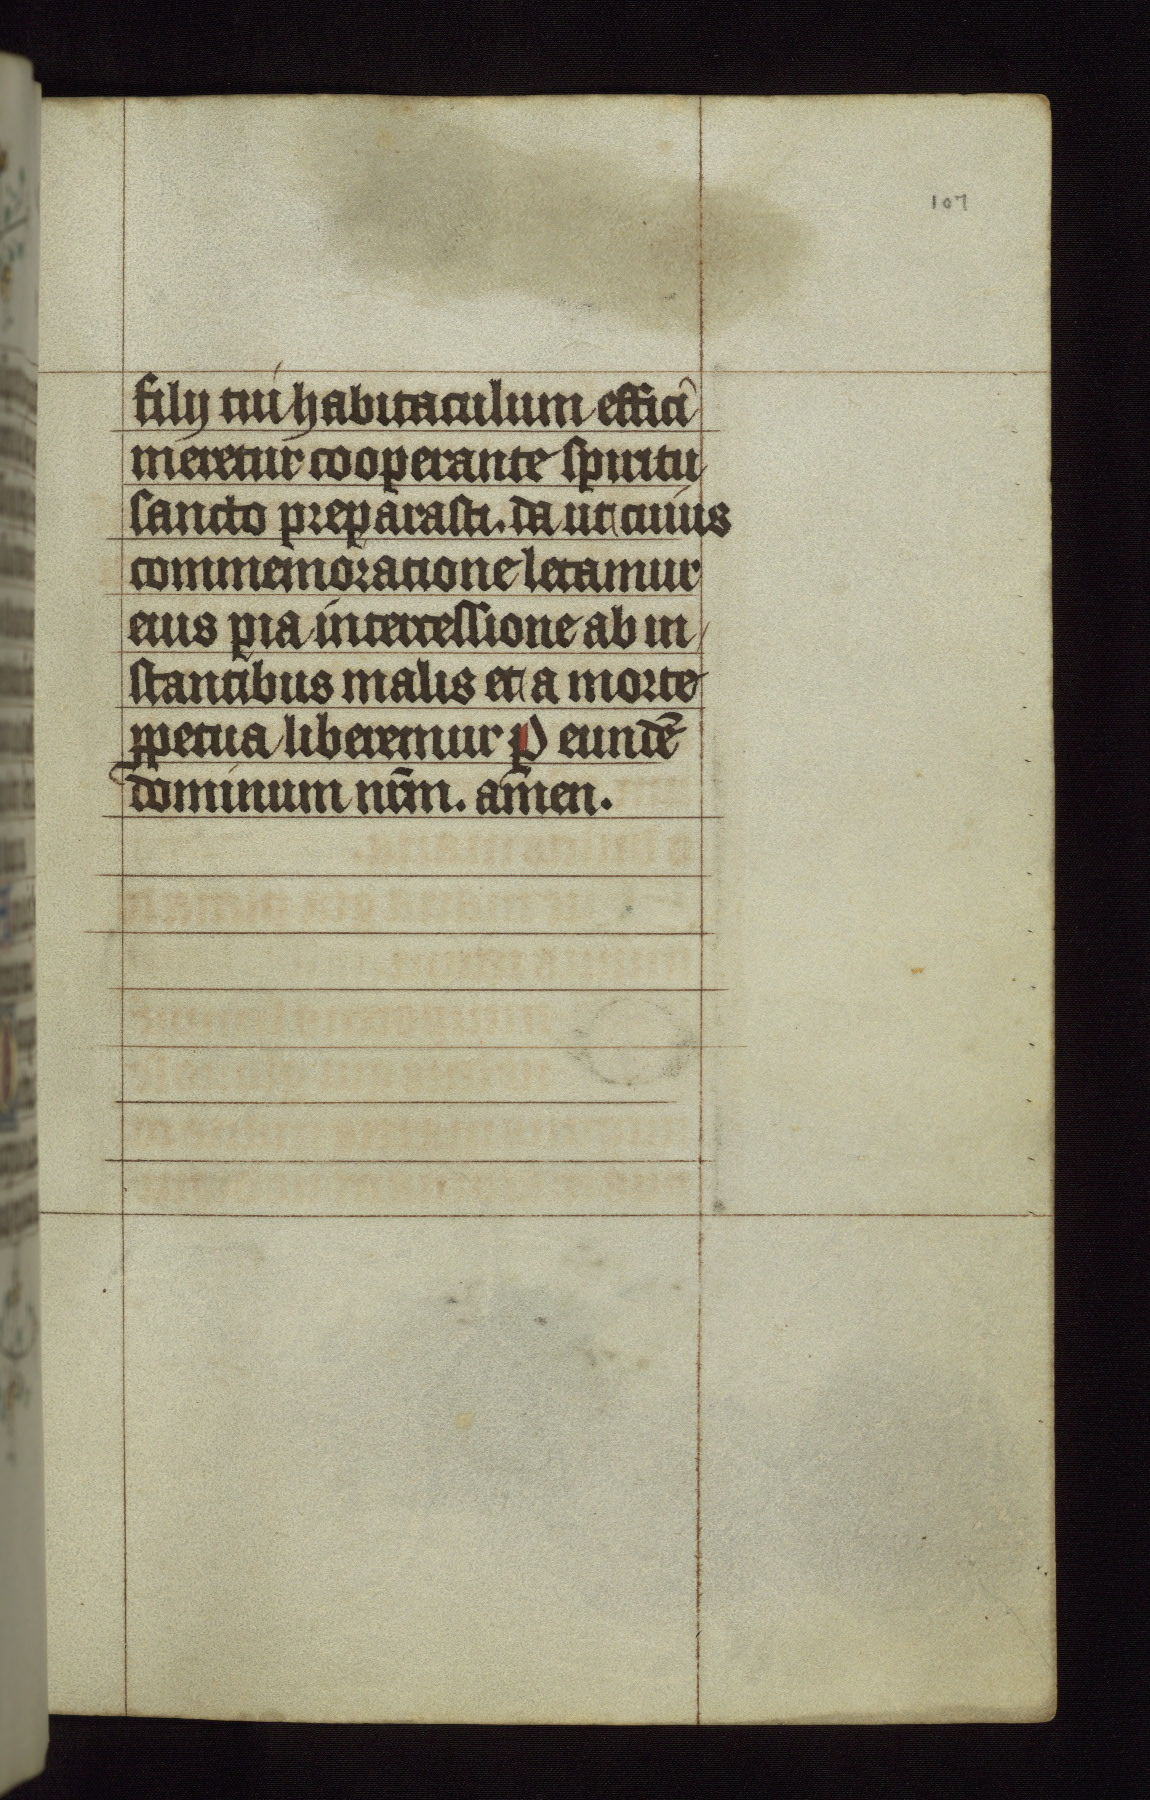 107
filij tui habitaculum effici
meretur cooperante spiritu
sancto preparasti. da ut cuius
commemoratione letamur
eius pia intercessione ab in
stantibus malis et a morte
ꝑpetua liberemur P eundē
dominum nr̄m. amen.